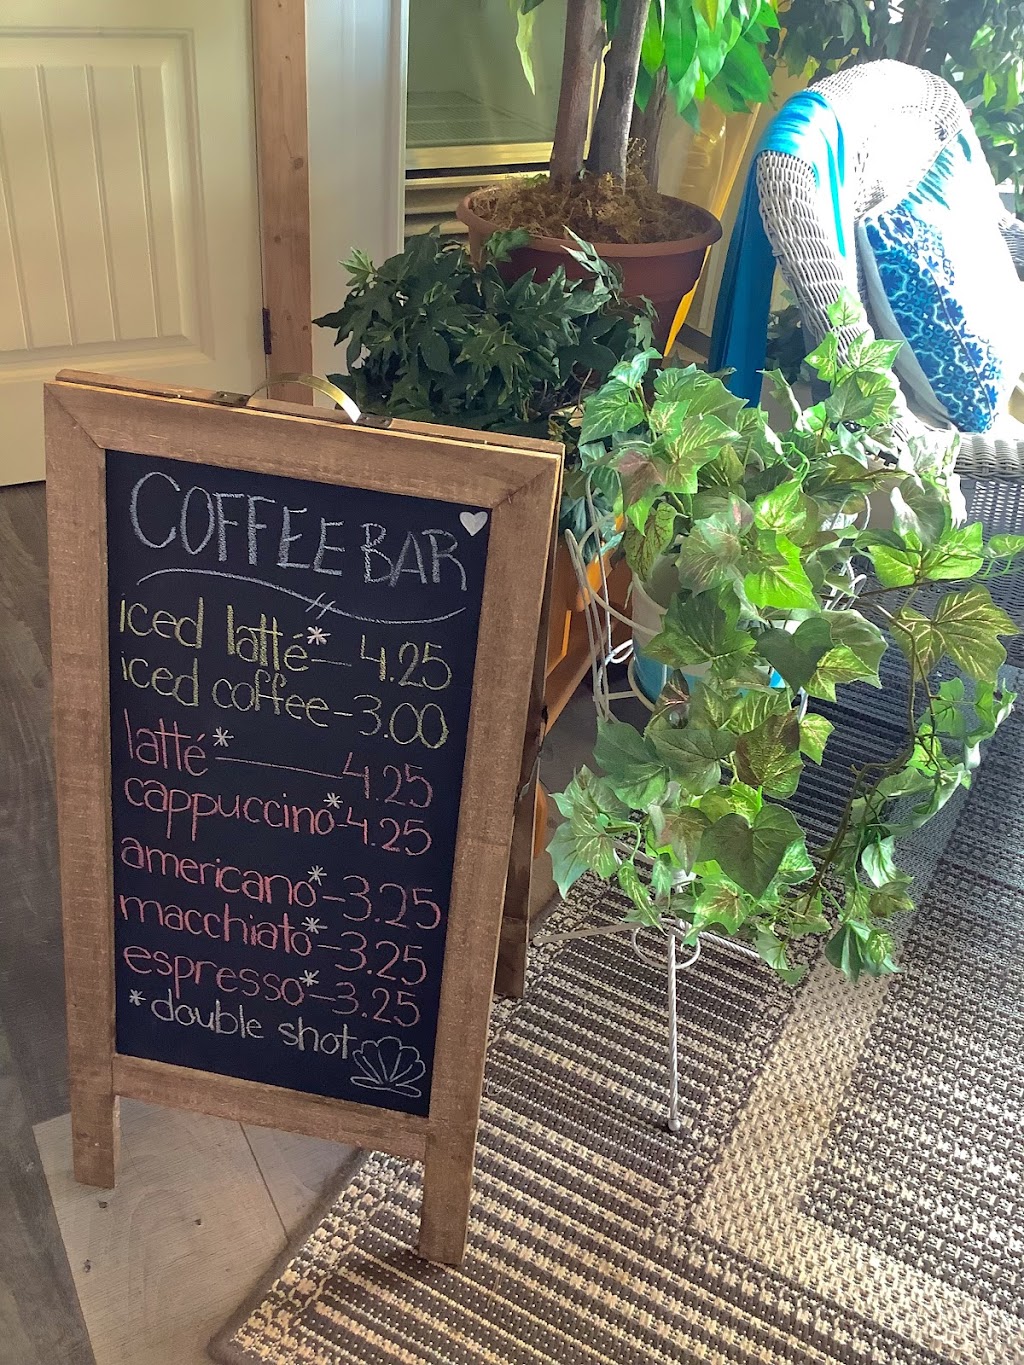 COFFEE BAR
iced latté*—4.25
iced coffee—3.00
latté*—4.25
cappuccino*-4.25
americano*—3.25
macchiato*—3.25
espresso*—3.25
*double shot